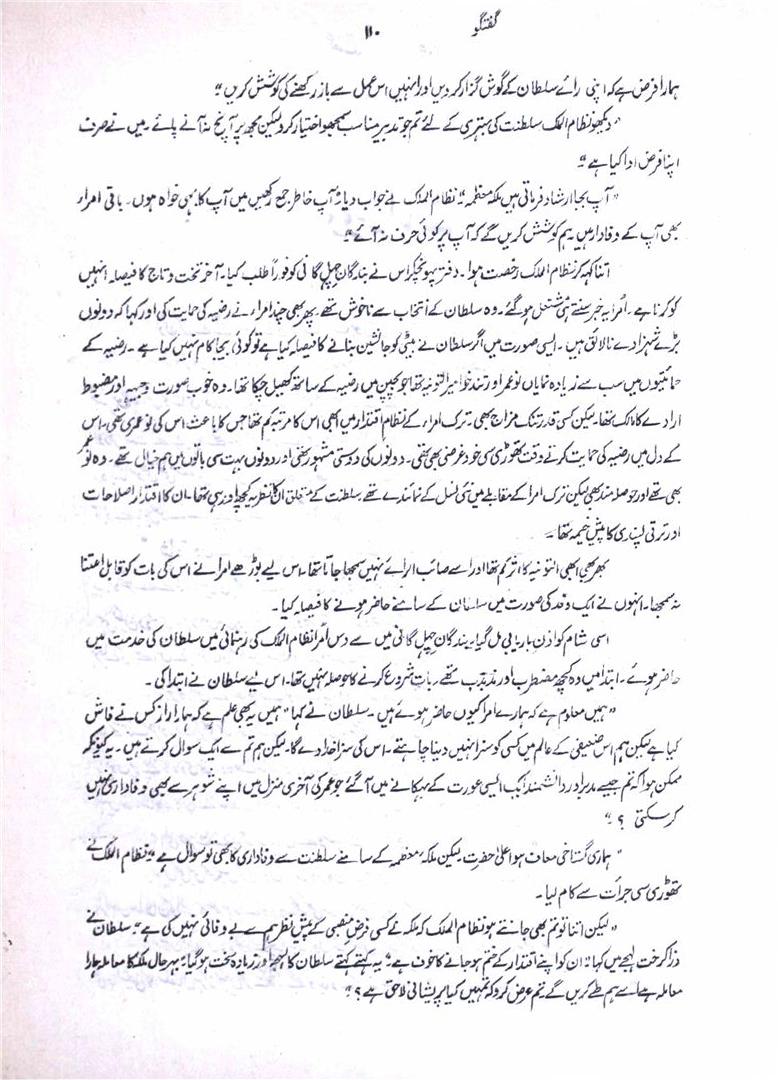 گفتگو
۱۱۰
ہمارا فرض ہے کہ اپنی رائے سلطان کے گوش گزار کر دیں اور انہیں اس عمل سے باز رکھنے کی کوشش کریں"
"دیکھو نظام الملک سلطنت کی بہتری کے لئے تم جو تدبیر مناسب سمجھو اختیار کرو لیکن مجھ پر آنچ نہ آنے پائے۔ میں نے صرف
اپنا فرض ادا کیا ہے"
"آپ بجا ارشاد فرماتی ہیں ملکہ معظمہ" نظام الملک نے جواب دیا "آپ خاطر جمع رکھیں میں آپ کا بہی خواہ ہوں۔ باقی امراء
بھی آپ کے وفادار ہیں۔ ہم کوشش کریں گے کہ آپ پر کوئی حرف نہ آئے"
اتنا کہہ کر نظام الملک رخصت ہوا۔ دفتر پہونچکر اس نے بندگان چہل گانی کو فوراً طلب کیا۔ آخر تخت و تاج کا فیصلہ انہیں
کو کرنا ہے۔ امراء یہ خبر سنتے ہی مشتعل ہو گئے۔ وہ سلطان کے انتخاب سے ناخوش تھے۔ پھر بھی چند امراء نے رضیہ کی حمایت کی اور کہا کہ دونوں
بڑے شہزادے نالائق ہیں۔ ایسی صورت میں اگر سلطان نے بیٹی کو جانشین بنانے کا فیصلہ کیا ہے تو کوئی بیجا کام نہیں کیا ہے۔ رضیہ کے
حمائتیوں میں سب سے زیادہ نمایاں نو عمر اور تند خو امیر التونیہ تھا جو بچپن میں رضیہ کے ساتھ کھیل چکا تھا۔ وہ خوب صورت وجیہہ اور مضبوط
ارادے کا مالک تھا۔ لیکن کسی قدر تنک مزاج بھی۔ ترک امراء کے نظام اقتدار میں ابھی اس کا مرتبہ کم تھا جس کا باعث اس کی نو عمری تھی۔ اس
کے دل میں رضیہ کی حمایت کرتے وقت تھوڑی سی خود غرضی بھی تھی۔ دونوں کی دوستی مشہور تھی اور دونوں بہت سی باتوں میں ہم خیال تھے۔ وہ نو عمر
بھی تھے اور حوصلہ مند بھی لیکن ترک امراء کے مقابلے میں نئی نسل کے نمائندے تھے سلطنت کے متعلق ان کا نظریہ کچھ اور ہی تھا۔ ان کا اقتدار اصلاحات
اور ترقی پسندی کا پیش خیمہ تھا۔
پھر بھی ابھی التونیہ کا اثر کم تھا اور اسے صائب الرائے نہیں سمجھا جاتا تھا۔ اس لیے بوڑھے امراء نے اس کی بات کو قابل اعتنا
نہ سمجھا۔ انہوں نے ایک وفد کی صورت میں سلطان کے سامنے حاضر ہونے کا فیصلہ کیا۔
اسی شام کو اذن باریابی مل گیا۔ بندگان چہل گانی میں سے دس امراء نظام الملک کی رہنمائی میں سلطان کی خدمت میں
حاضر ہوئے۔ ابتدا میں وہ کچھ مضطرب اور مذبذب تھے۔ بات شروع کرنے کا حوصلہ نہیں تھا۔ اس لیے سلطان نے ابتدا کی۔
"ہمیں معلوم ہے کہ ہمارے امراء کیوں حاضر ہوئے ہیں۔ سلطان نے کہا "ہمیں یہ بھی علم ہے کہ ہمارا راز کس نے فاش
کیا ہے لیکن ہم اس ضعیفی کے عالم میں کسی کو سزا نہیں دینا چاہتے۔ اس کی سزا خدا دے گا۔ لیکن ہم تم سے ایک سوال کرتے ہیں۔ یہ کیونکر
ممکن ہوا کہ تم جیسے مدبر اور دانشمند ایک ایسی عورت کے بہکانے میں آ گئے جو عمر کی آخری منزل میں اپنے شوہر سے بھی وفاداری نہیں
کر سکتی ؟"
"ہماری گستاخی معاف ہو اعلیٰ حضرت لیکن ملکہ معظمہ کے سامنے سلطنت سے وفاداری کا بھی تو سوال ہے" نظام الملک نے
تھوڑی سی جرأت سے کام لیا۔
"لیکن اتنا تو تم بھی جانتے ہو نظام الملک کہ ملکہ نے کسی فرض منصبی کے پیش نظر ہم سے بے وفائی نہیں کی ہے" سلطان نے
ذرا کرخت لہجے میں کہا "ان کو اپنے اقتدار کے ختم ہو جانے کا خوف ہے" یہ کہتے کہتے سلطان کا لہجہ اور زیادہ سخت ہو گیا "بہر حال ملکہ کا معاملہ ہمارا
معاملہ ہے اسے ہم طے کریں گے۔ تم عرض کرو کہ تمہیں کیا پریشانی لاحق ہے ؟"